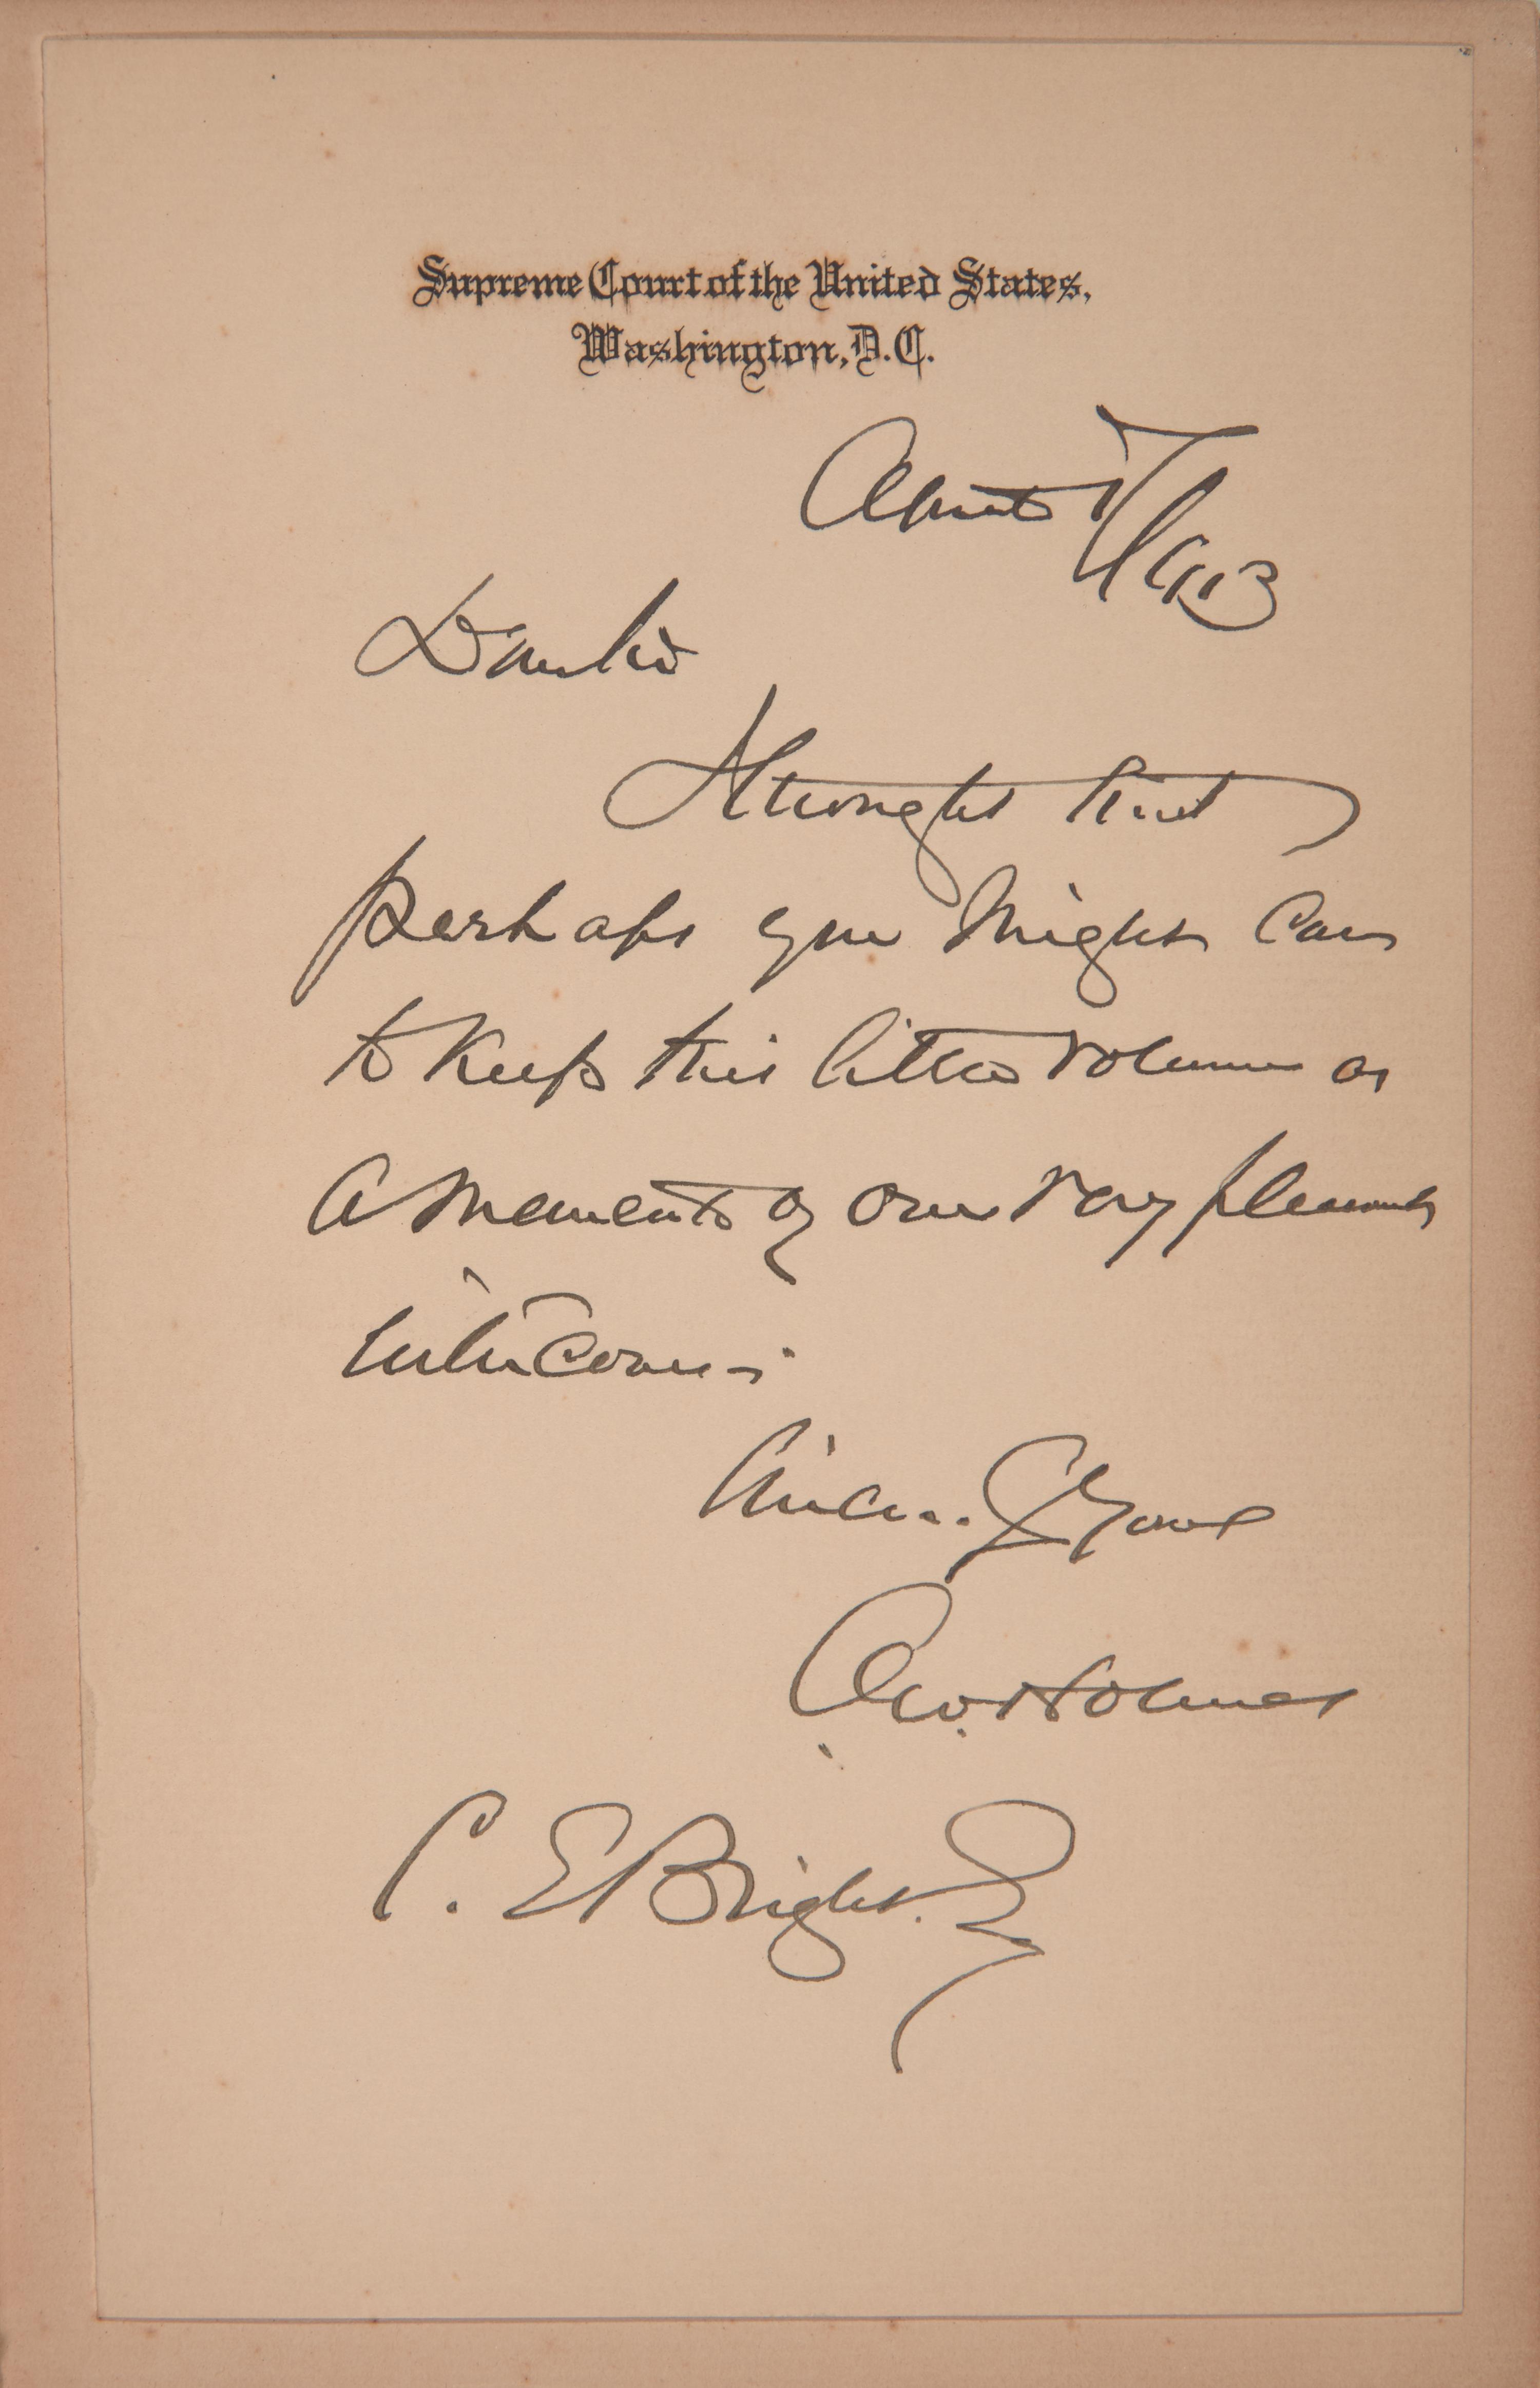 Supreme Court of the United States,
Washington, D.C.
1913
Dear Sir
I thought that
perhaps you might care
to keep this little volume as
a memento of our very pleasant
intercourse
Sincerely Yours
O.W. Holmes
C. E. Bright.